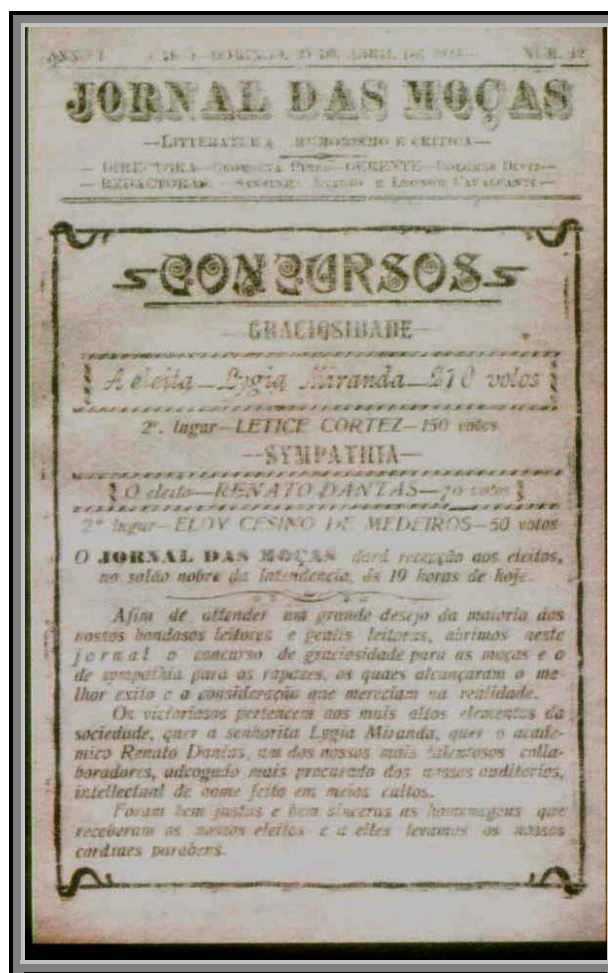 ANNO I DOMINGO, DE ABRIL DE NUM. 12
JORNAL DAS MOÇAS
—LITTERATURA, HUMORISMO E CRITICA—
— DIRECTORA—GEORGINA PIRES—GERENTE—DOLORES DINIZ—
— REDACTORAS— E LEONOR CAVALCANTI—
CONCURSOS
—GRACIOSIDADE—
A eleita—Lygia Miranda—210 votos
2º. lugar—LETICE CORTEZ—150 votos
—SYMPATHIA—
O eleito—RENATO DANTAS—70 votos
2º lugar—ELOY CESINO DE MEDEIROS—50 votos
O JORNAL DAS MOÇAS dará recepção aos eleitos,
no salão nobre da Intendencia, ás 19 horas de hoje.
Afim de attender um grande desejo da maioria dos
nossos bondosos leitores e gentis leitoras, abrimos neste
jornal o concurso de graciosidade para as moças e o
de sympathia para os rapazes, os quaes alcançaram o me-
lhor exito e a consideração que mereciam na realidade.
Os victoriosos pertencem aos mais altos elementos da
sociedade, quer a senhorita Lygia Miranda, quer o acade-
mico Renato Dantas, um dos nossos mais talentosos colla-
boradores, advogado mais procurado dos nossos auditorios,
intellectual de nome feito em meios cultos.
Foram bem justas e bem sinceras as homenagens que
receberam os nossos eleitos e a elles levamos os nossos
cordiaes parabens.